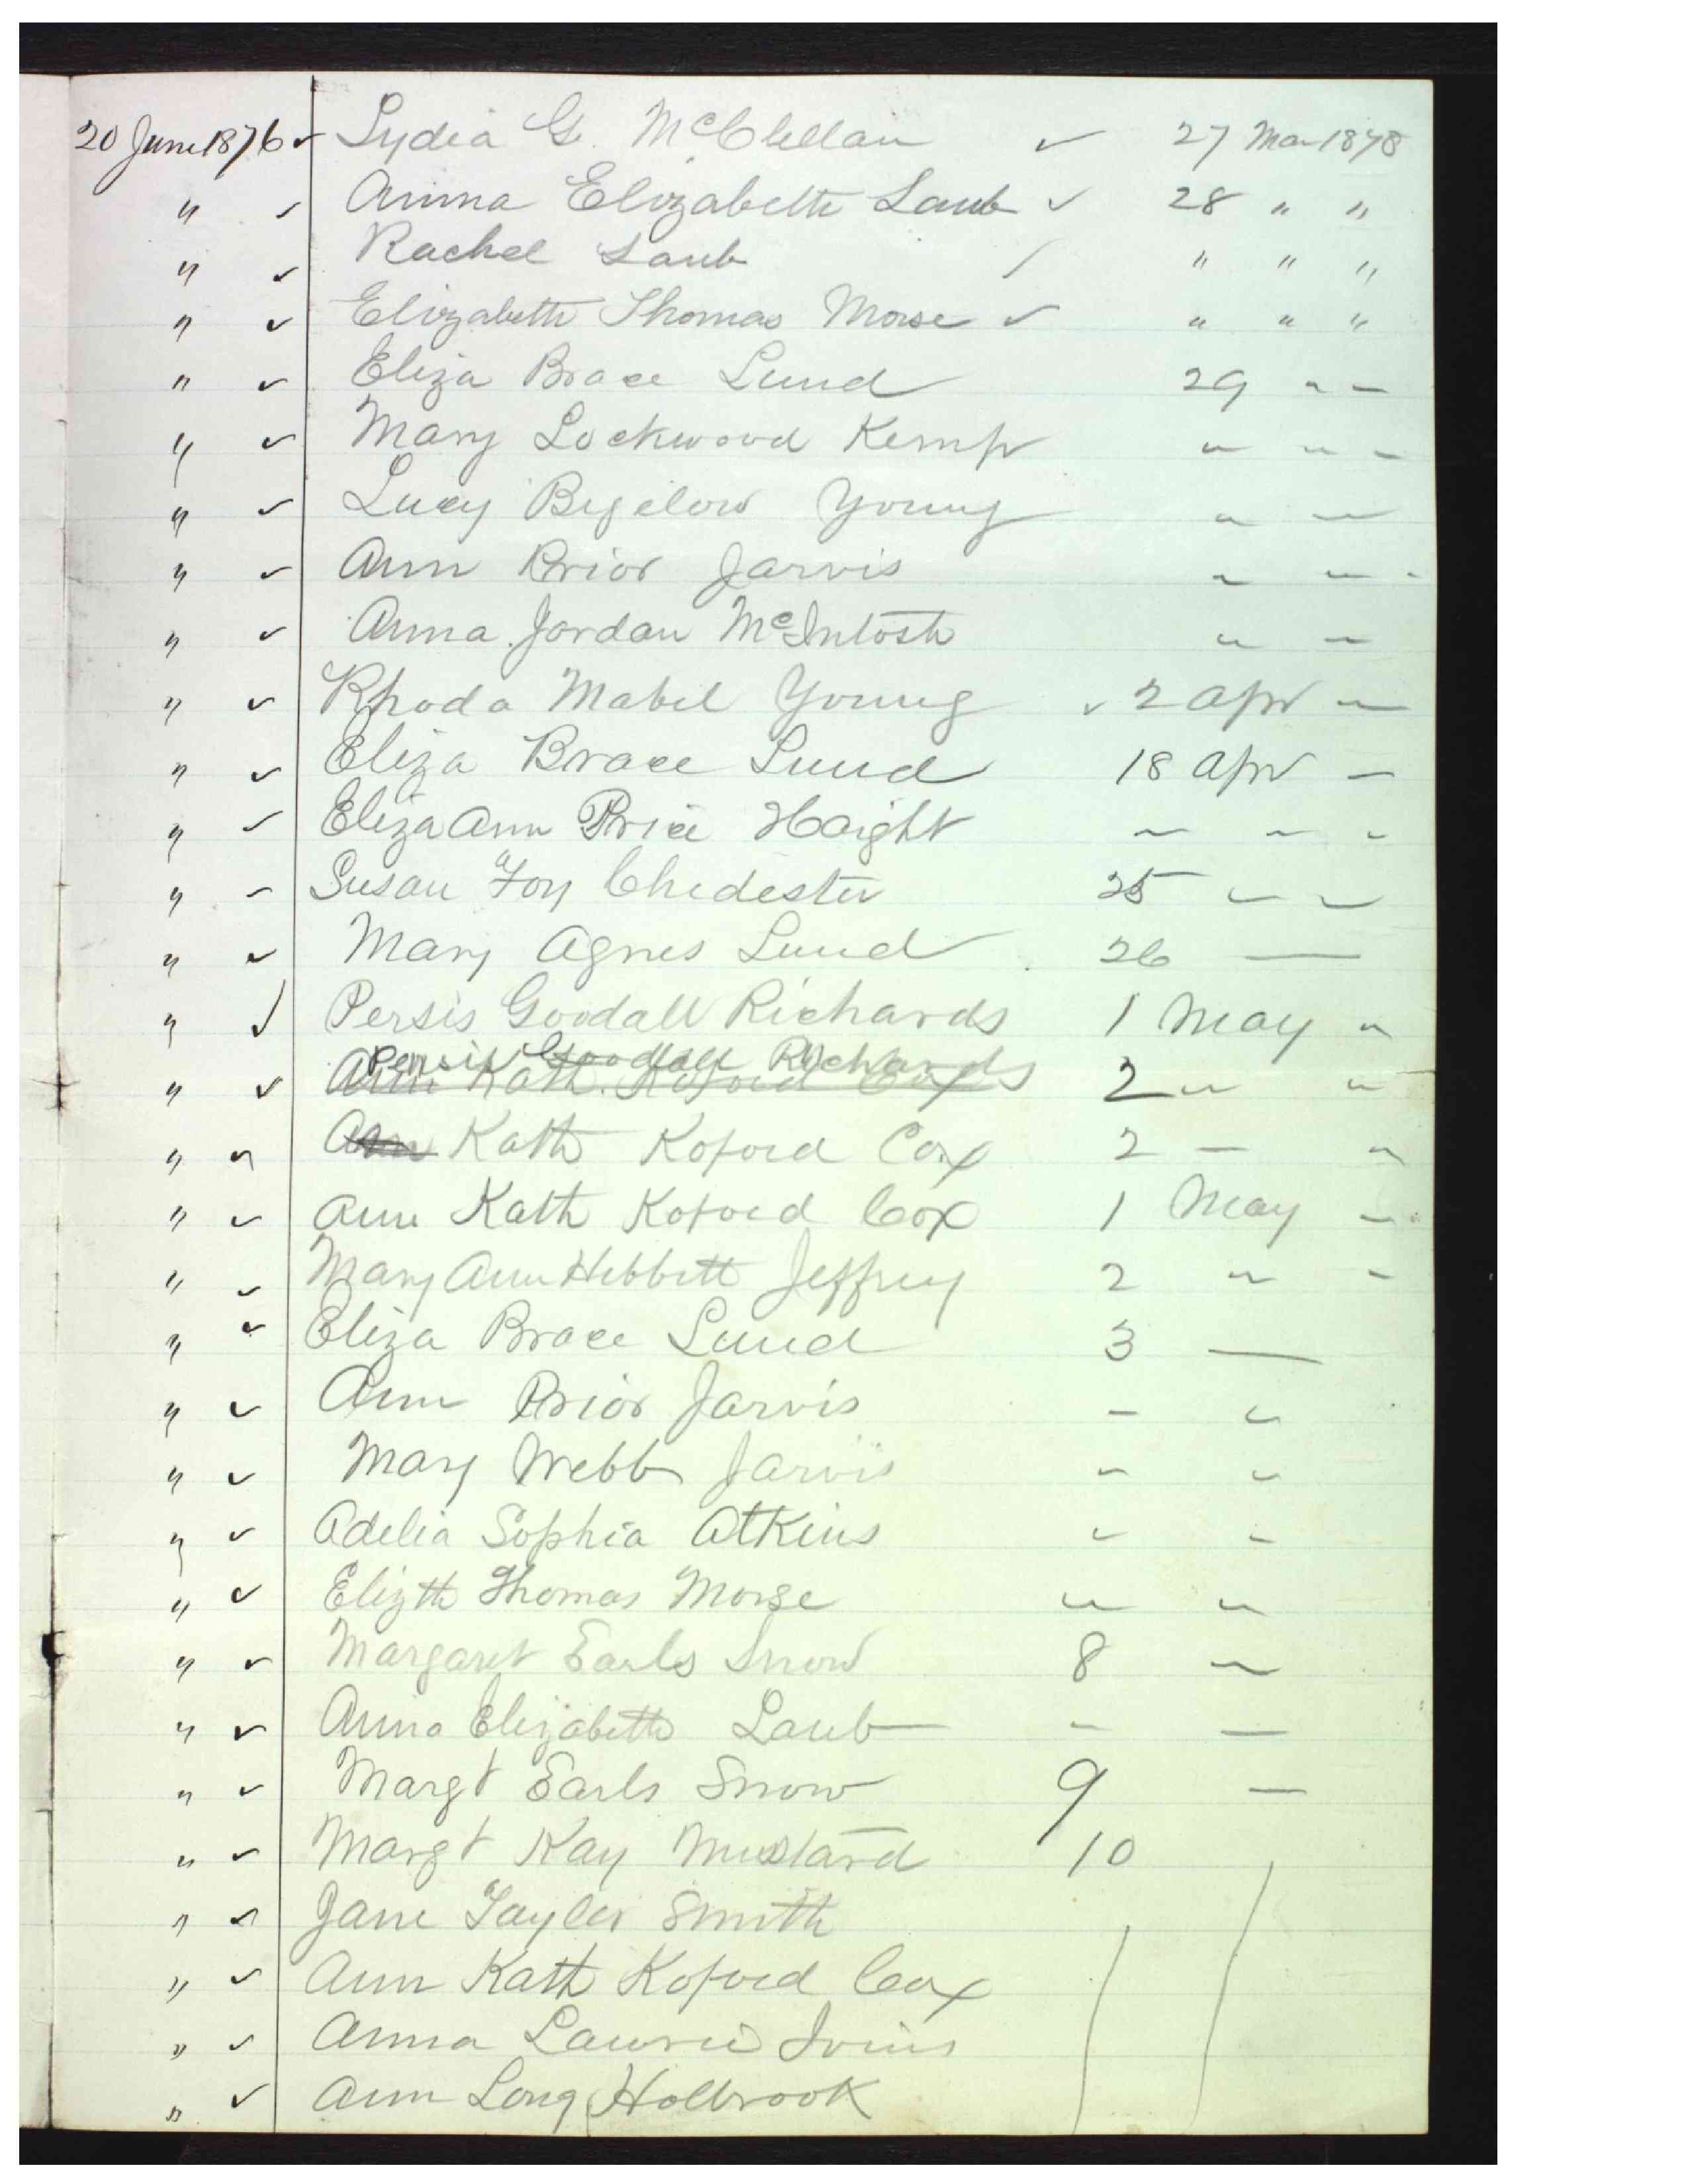 20 June 1876 ✓ Lydia G. McClellan ✓ 27 Mar 1878
" ✓ Anna Elizabeth Laub ✓ 28 " "
" ✓ Rachel Laub / " " "
" ✓ Elizabeth Thomas Morse ✓ " " "
" ✓ Eliza Brace Lund 29 " "
" ✓ Mary Lockwood Kemp " " "
" ✓ Lucy Bigelow Young " "
" ✓ Ann Prior Jarvis " " "
" ✓ Anna Jordan McIntosh " "
" ✓ Rhoda Mabel Young ✓ 2 Apr "
" ✓ Eliza Brace Lund 18 Apr "
" ✓ Eliza Ann Price Haight " " "
" ✓ Susan Foy Chedester 25 " "
" ✓ Mary Agnes Lund 26 —
" ✓ Persis Goodall Richards 1 May "
Persis Goodall Richards
" ✓ Ann Kath. Koford Cox 2 " "
" ✓ Ann Kath Koford Cox 2 — "
" ✓ Ann Kath Koford Cox 1 May "
" ✓ Mary Ann Hibbett Jeffrey 2 " "
" ✓ Eliza Brace Lund 3 —
" ✓ Ann Prior Jarvis " "
" ✓ Mary Webb Jarvis " "
" ✓ Adelia Sophia Atkins " "
" ✓ Elizth Thomas Morse " "
" ✓ Margaret Earls Snow 8 "
" ✓ Anna Elizabeth Laub " —
" ✓ Margt Earls Snow 9 —
" ✓ Margt Kay Mustard 10
" ✓ Jane Tayler Smith
" ✓ Ann Kath Koford Cox
" ✓ Anna Lowrie Ivins
" ✓ Ann Long Holbrook